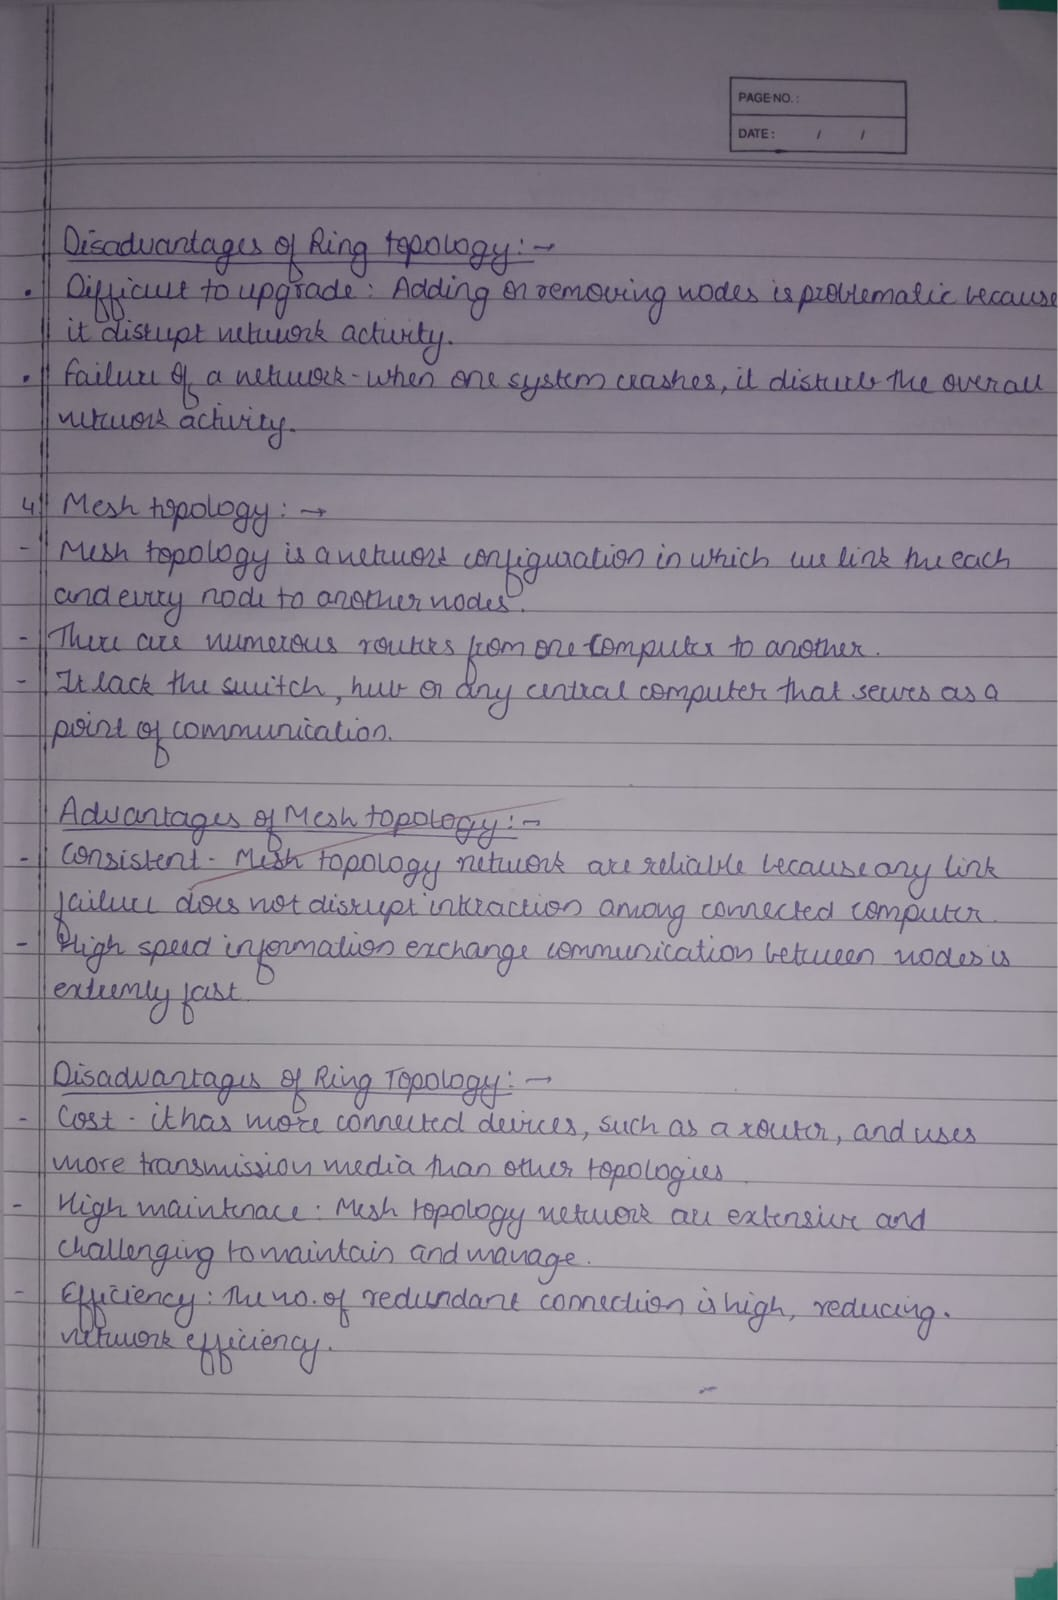 PAGE NO.:
DATE: / /
Disadvantages of Ring topology:→
• Difficult to upgrade: Adding or removing nodes is problematic because
it disrupt network activity.
• Failure of a network - when one system crashes, it disturb the overall
network activity.
4) Mesh topology: →
- Mesh topology is a network configuration in which we link the each
and every node to another nodes.
- There are numerous routes from one computer to another.
- It lack the switch, hub or any central computer that serves as a
point of communication.
Advantages of Mesh topology:→
- Consistent - Mesh topology network are reliable because any link
failure does not disrupt interaction among connected computer.
- High speed information exchange communication between nodes is
extremly fast.
Disadvantages of Ring Topology: →
- Cost - it has more connected devices, such as a router, and uses
more transmission media than other topologies.
- High maintenace: Mesh topology network are extensive and
challenging to maintain and manage.
- Efficiency: The no. of redundant connection is high, reducing.
network efficiency.